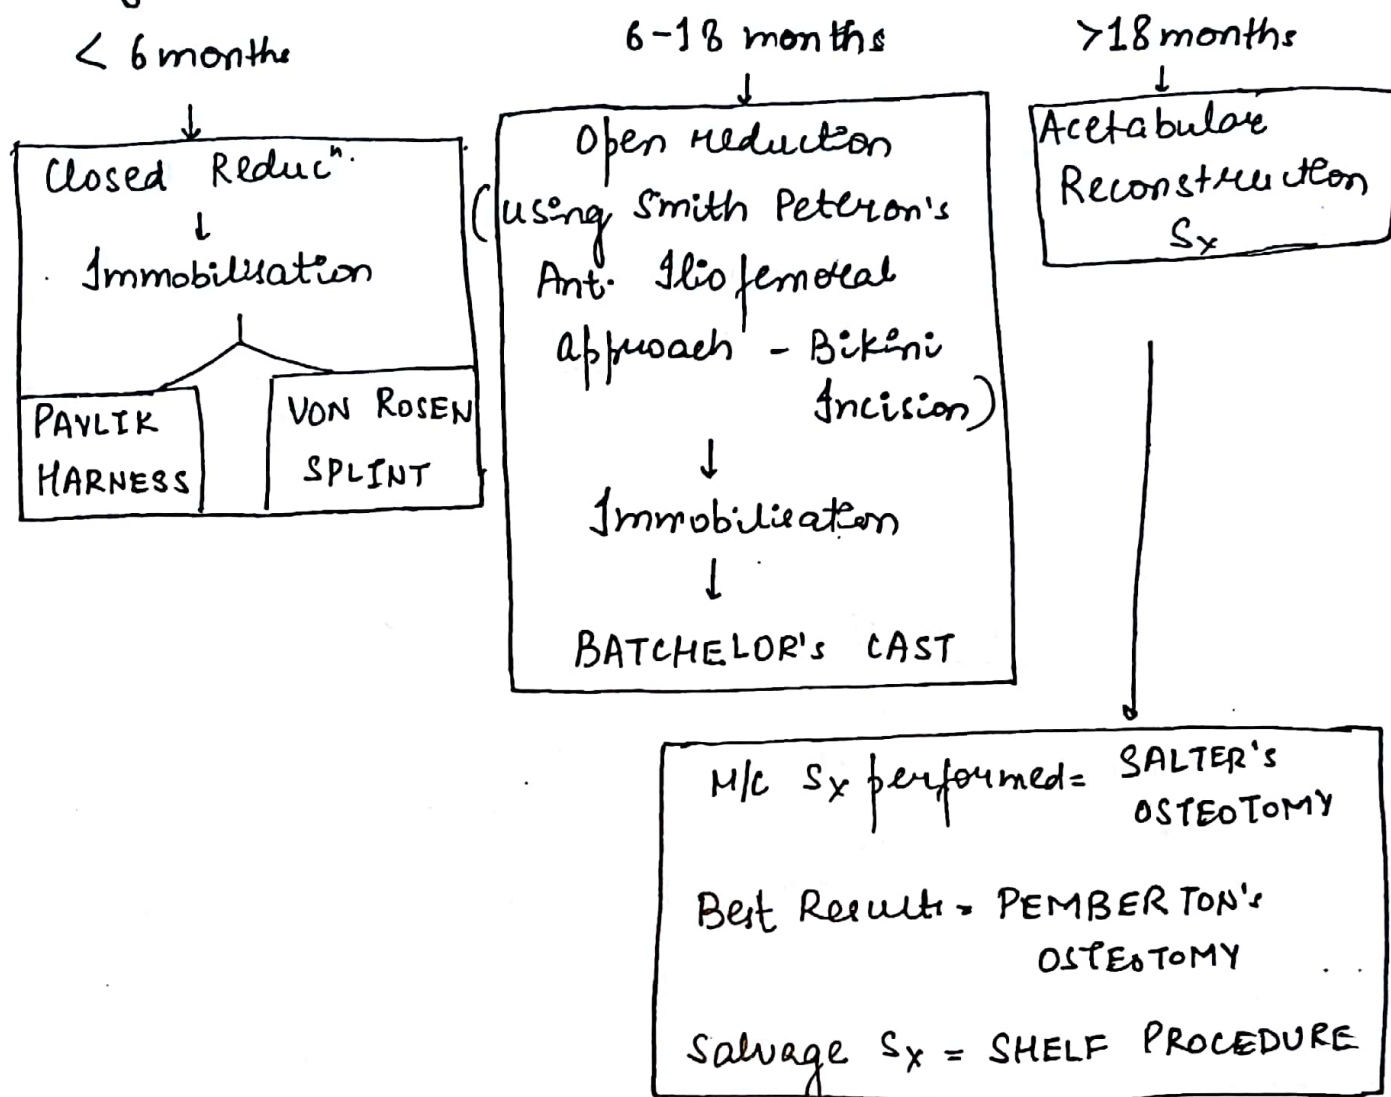 < 6 months
↓
Closed Reducⁿ.
↓
Immobilisation
PAVLIK
HARNESS
VON ROSEN
SPLINT
6-18 months
↓
Open reduction
(using Smith Peterson's
Ant. Iliofemoral
approach - Bikini
Incision)
↓
Immobilisation
↓
BATCHELOR's CAST
>18 months
↓
Acetabular
Reconstruction
Sx
M/C Sx performed = SALTER's
OSTEOTOMY
Best Results = PEMBERTON's
OSTEOTOMY
Salvage Sx = SHELF PROCEDURE